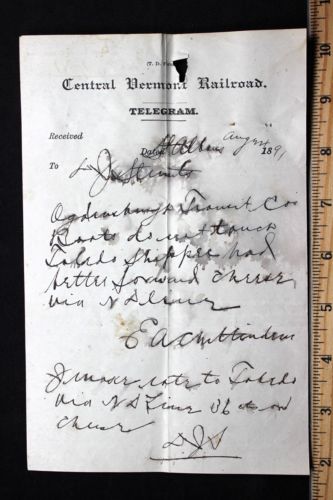 Central Vermont Railroad.
TELEGRAM.
Received
Dated St Albans Aug 1891
To D J
Ogdensburgh Transit Co
Boats do not touch
Toledo Shipper had
better forward cheese
via N S Line
E A Chittenden
rate to Toledo
via N S Line 36 ct on
cheese
D J S
10
9
8
7
6
5
4
3
2